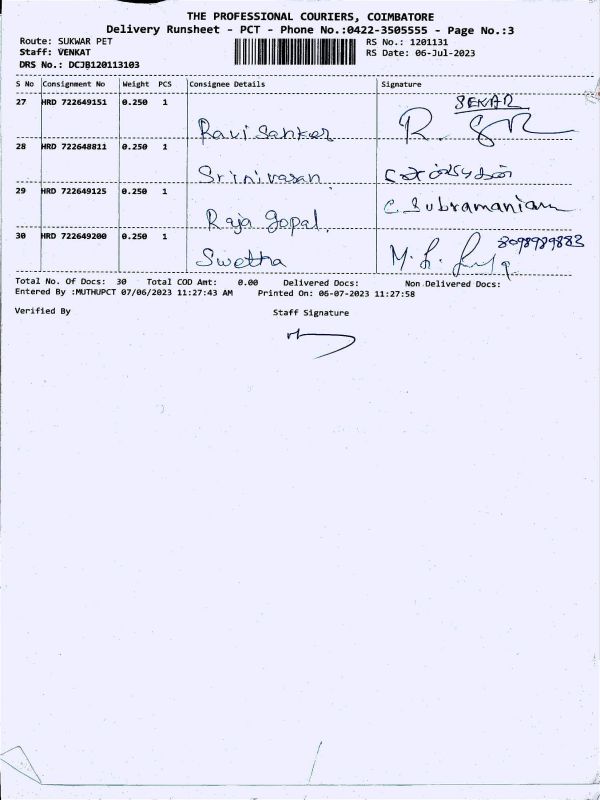 THE PROFESSIONAL COURIERS, COIMBATORE
Delivery Runsheet - PCT - Phone No.:0422-3505555 - Page No.:3
Route: SUKWAR PET
RS No.: 1201131
Staff: VENKAT
RS Date: 06-Jul-2023
DRS No.: DCJB120113103
S No Consignment No Weight PCS Consignee Details Signature
27 HRD 722649151 0.250 1 SEKAR
Ravi Sanker R.
28 HRD 722648811 0.250 1
Srinivasan
29 HRD 722649125 0.250 1 C. Subramaniam
Raja Gopal.
30 HRD 722649200 0.250 1 8098989883
Swetha M.
Total No. Of Docs: 30 Total COD Amt: 0.00 Delivered Docs: Non Delivered Docs:
Entered By :MUTHUPCT 07/06/2023 11:27:43 AM Printed On: 06-07-2023 11:27:58
Verified By Staff Signature